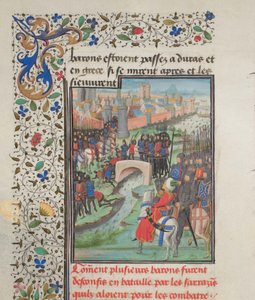 barons estoient passez a duras et
en grece si se mirent apres et les
sieuvirent
Comment plusieurs barons furent
desconfis en bataille par les sarrazins
quilz aloient pour les combatre